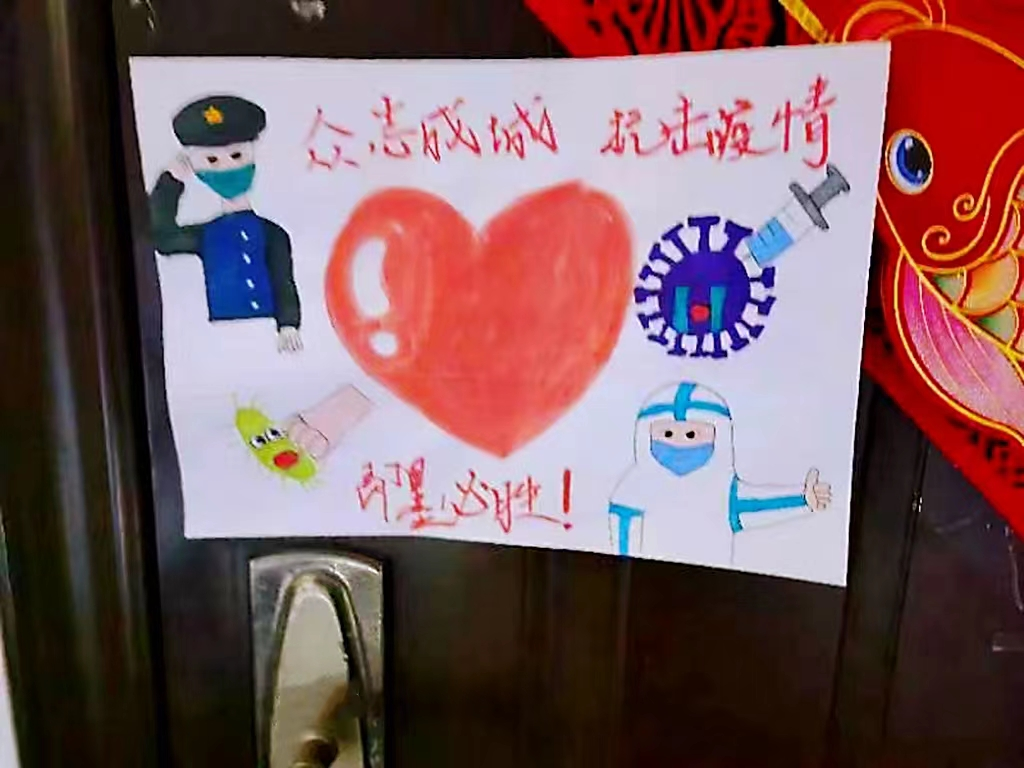 众志成城 抗击疫情
即墨必胜！